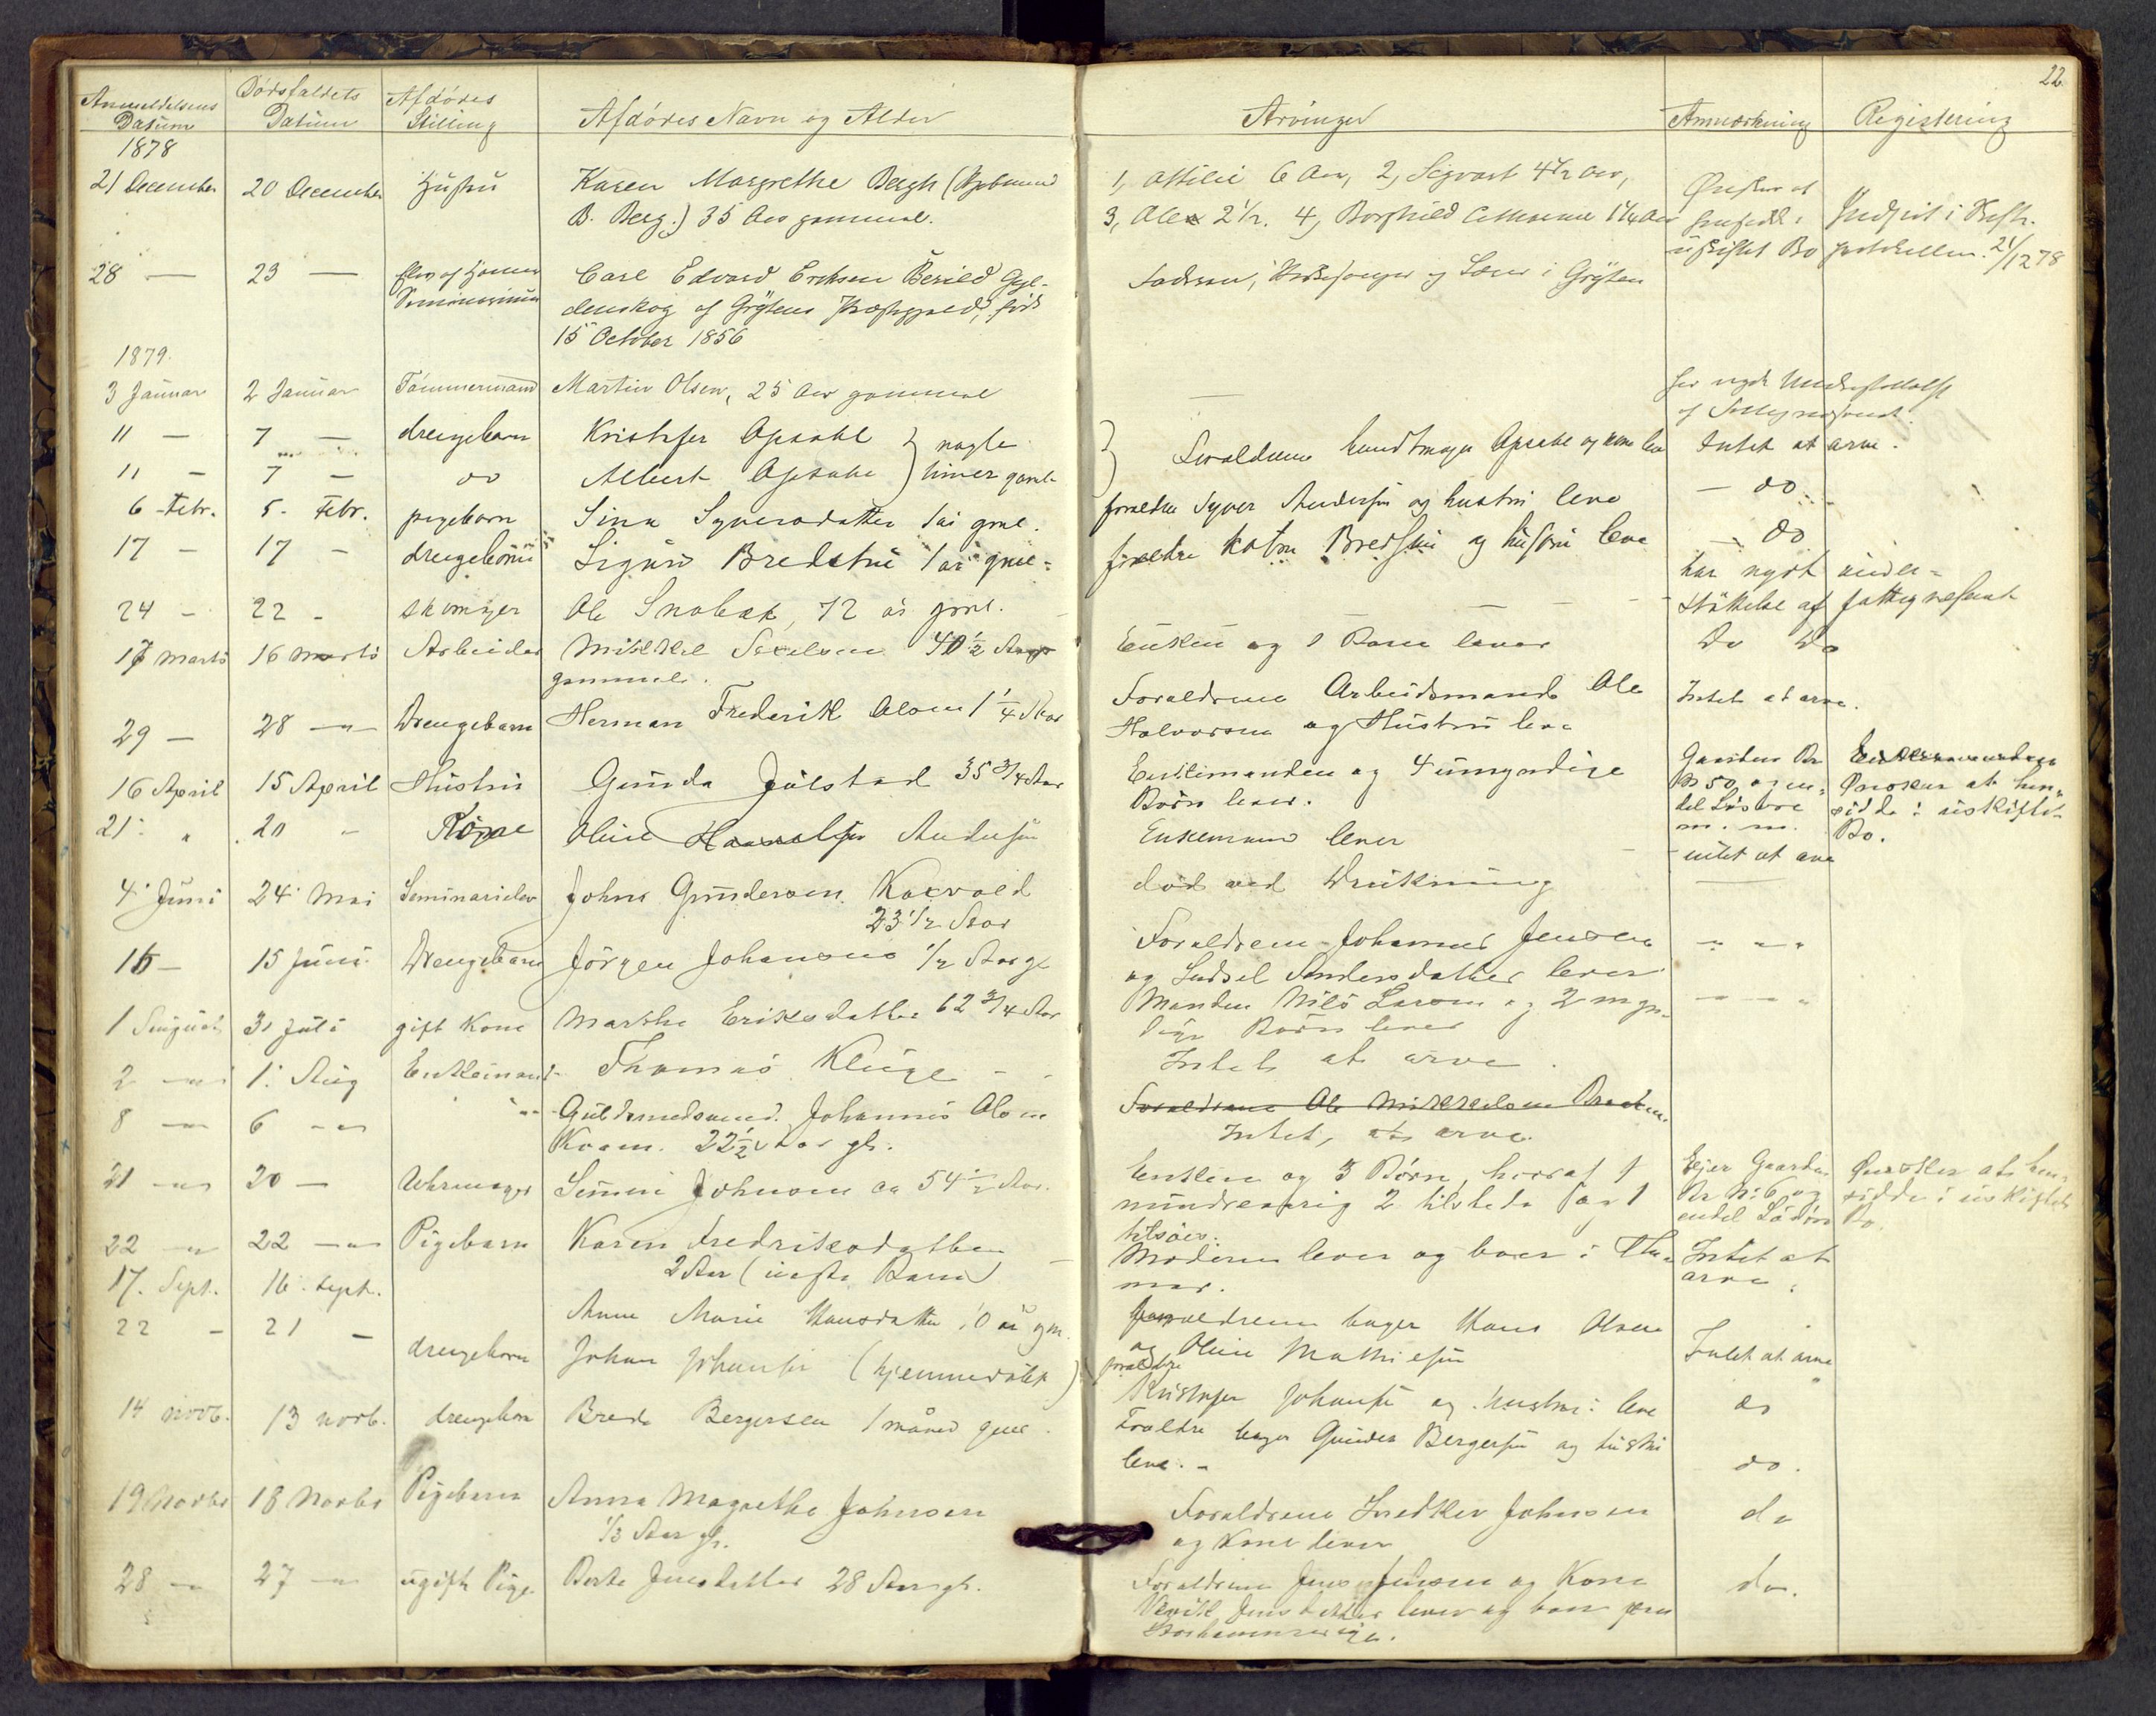 22.
Anmeldelsens Datum
Dødsfaldets Datum
Afdødes Stilling
Afdødes Navn og Alder
Arvinger
Anmærkning
Registering
1878
21 December 20 December Hustru Karen Margrethe Bergh (
B. Berg.) 35 Aar gammel.
1, Ottilie 6 Aar, 2, Sigvart 4 1/2 Aar,
3, Olea 2 1/2. 4, Borghild 1 1/4 Aar
Ønsker at
uskiftet Bo
Indført i
protokollen 21/12 78
28 — 23 — Elev af Hamar Seminarium Carl Edvard Eriksen Gyl-
denskog af Grytens Præstegjeld, født
15 October 1856
Faderen, Kirkesanger og Lærer i Gryten
1879.
3 Januar 2 Januar Tømmermand Martin Olsen, 25 Aar gammel
—
har nydt Understøttelse
af
11 — 7 — drengebarn Kristofer Opsahl } nogle
11 — 7 — do Albert Opsahl } timer gamle
} Forældrene Opsahl og kone leve
Intet at arve.
— do
6 Febr. 5. Febr. pigebarn Sina Syversdatter 1 år gml.
forældre Syver Andersen og hustru leve
— do
17 — 17 — drengebarn Sigurd 1 år gml.
forældre og hustru leve
24 — 22 - skomager Ole Snobæk, 72 år gml.
har nydt under-
støttelse af fattigvesenet
17 Marts 16 Marts Arbeider Mikkel 40 1/2 Aar
gammel.
Enken og 1 Barn lever
Do Do
29 — 28 —"— Drengebarn Herman Frederik Olsen 1 1/4 Aar
Forældrene Arbeidsmand Ole
Halvorsen og Hustru leve
Intet at arve.
16 April 15 April Hustru Gunda Julstad 35 3/4 Aar
Enkemanden og 4 umyndige
Børn lever.
Gaarden Br
N 50 og en
del Løsøre
m. m.
Enkemanden
Ønsker at hen-
sidde i uskiftet
Bo.
21 " 20 " Kone Oline Andersen
Enkemand lever
- intet at arve
4 Juni 24 Mai Seminarielev Johns Gundersen Kaxvold
23 1/2 Aar
død ved Drukning
—
16 — 15 Juni Drengebarn Jörgen Johansens 1/2 Aar gl
Forældrene Johannes Jensen
og Andersdatter lever
" " "
1 August 31 Juli gift Kone Marthe Eriksdatter 62 3/4 Aar
Manden Nils Larsen og 2 myn-
dige Børn lever
2 —"— 1. Aug Enkemand - Thomas Kluge -
Intet at arve.
8 —"— 6 —"— Guldsmedsvend Johannes Olsen
22 1/2 Aar gl.
Forældrene Ole Mikkelsen
Intet, at arve.
21 —"— 20 — Uhrmager Simen Johnsen ca 54 1/2 Aar.
Enken og 3 Børn, hvoraf 1
mindreaarig 2 tilstede og 1
tilsøes.
Ejer Gaarden
Br N: 6 og
endel Løsöre
Ønsker at hen-
sidde i uskiftet
Bo.
22 —"— 22 —"— Pigebarn Karen Fredriksdatter
2 Aar (uægte Barn)
Moderen lever og boer i Ha-
mar.
Intet at
arve.
17. Sept. 16. sept.
Anne Marie Hansdatter 10 år gm.
forældrene bager Hans Olsen
og Oline Mathiesen
Intet at arve
22 - 21 - drengebarn Johan Johansen (hjemmedöbt)
forældre
Kristofer Johansen og hustru leve
do
14 novb. 13 novb. drengebarn Brede Bergersen 1 måned gml.
Forældre bager Gunder Bergersen og hustru
leve. -
do.
19 Novbr 18 Novbr Pigebarn Anna Magrethe Johnsen
1/2 Aar gl.
Forældrene Snedker Johnsen
og Kone lever
do
28 —"— 27 —"— ugift Pige Berte Jensdatter 28 Aar gl.
Forældrene Jens Jensen og Kone
Jensdatter lever og boer paa
Storhammer
do.